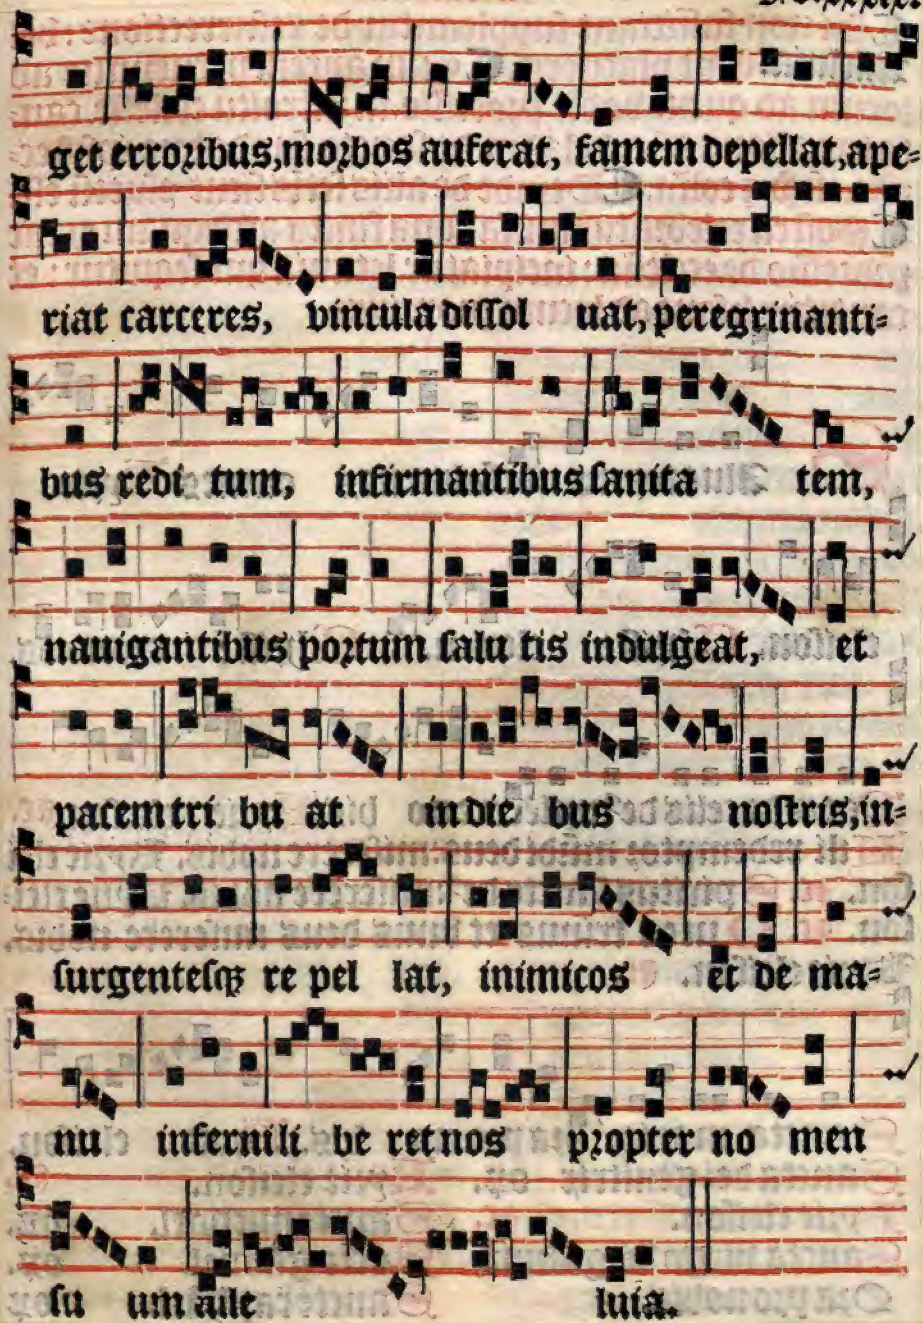 get erroꝛibus, moꝛbos auferat, famem depellat, ape⸗
riat carceres, vincula diſſol uat, peregrinanti⸗
bus redi tum, infirmantibus ſanita tem,
nauigantibus poꝛtum ſalu tis indulgeat, et
pacem tri bu at in die bus noſtris, in⸗
ſurgenteſqꝫ re pel lat, inimicos et de ma⸗
nu inferni li be ret nos pꝛopter no men
ſu um alle luia.